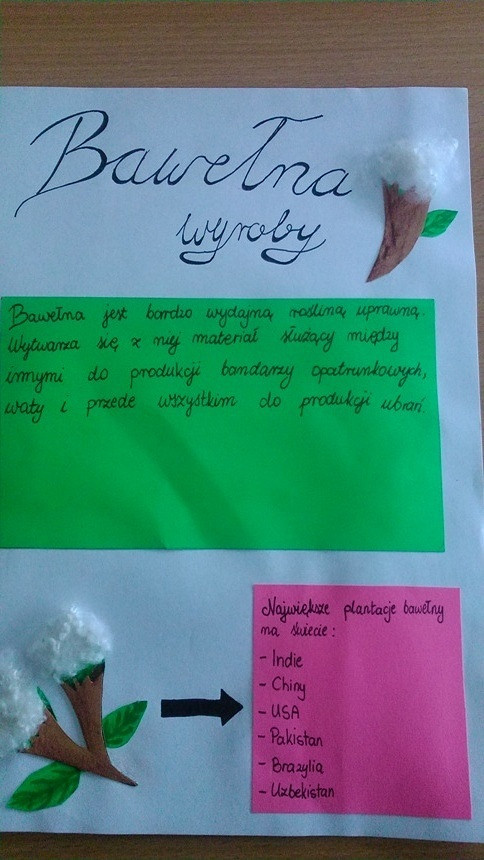 Bawełna
wyroby
Bawełna jest bardzo wydajną rośliną uprawną.
Wytwarza się z niej materiał służący między
innymi do produkcji bandarzy opatrunkowych,
waty i przede wszystkim do produkcji ubrań.
Największe plantacje bawełny
na świecie:
- Indie
- Chiny
- USA
- Pakistan
- Brazylia
- Uzbekistan